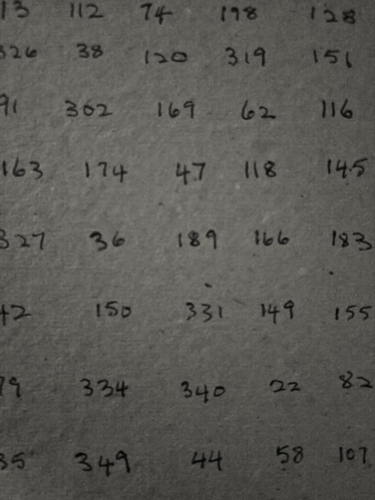 13 112 74 198 128
326 38 120 319 151
91 302 169 62 116
163 174 47 118 145
327 36 189 166 183
42 150 331 149 155
79 334 340 22 82
35 349 44 58 107